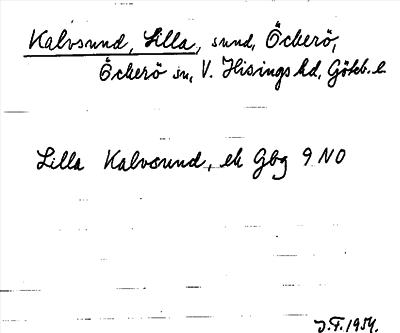 Kalvsund, Lilla, sund, Öckerö,
Öckerö sn, V. Hisings hd, Göteb. l.
Lilla Kalvsund, ek Gbg 9 NO
J.F. 1954.